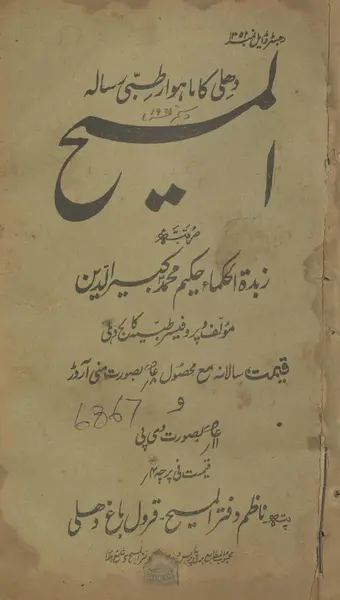 رجسٹرڈ ایل نمبر ۱۳۵۲
دھلی کا ماہوار طبّی رسالہ
المسیح
مرتبہ
زبدۃ الحکماء حکیم محمد کبیر الدین
مؤلف و پروفیسر طبیہ کالج دہلی
قیمت سالانہ مع محصول بصورت منی آرڈر
و
6867
بصورت وی پی
قیمت فی پرچہ ۴؍
پتہ ناظم دفتر المسیح - قرول باغ دھلی